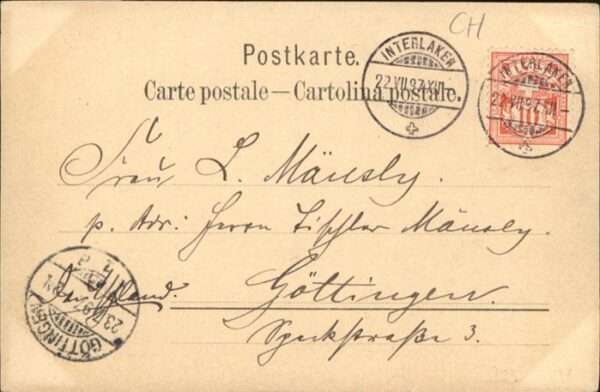 CH
Postkarte.
Carte postale — Cartolina postale.
INTERLAKEN
22.VII.97.XII–
INTERLAKEN
22.VII.97.XII–
10
Frau L. Mänsly.
p. Adr: Herrn Tischler Mänsly.
Göttingen.
Speckstraße 3.
GÖTTINGEN
23